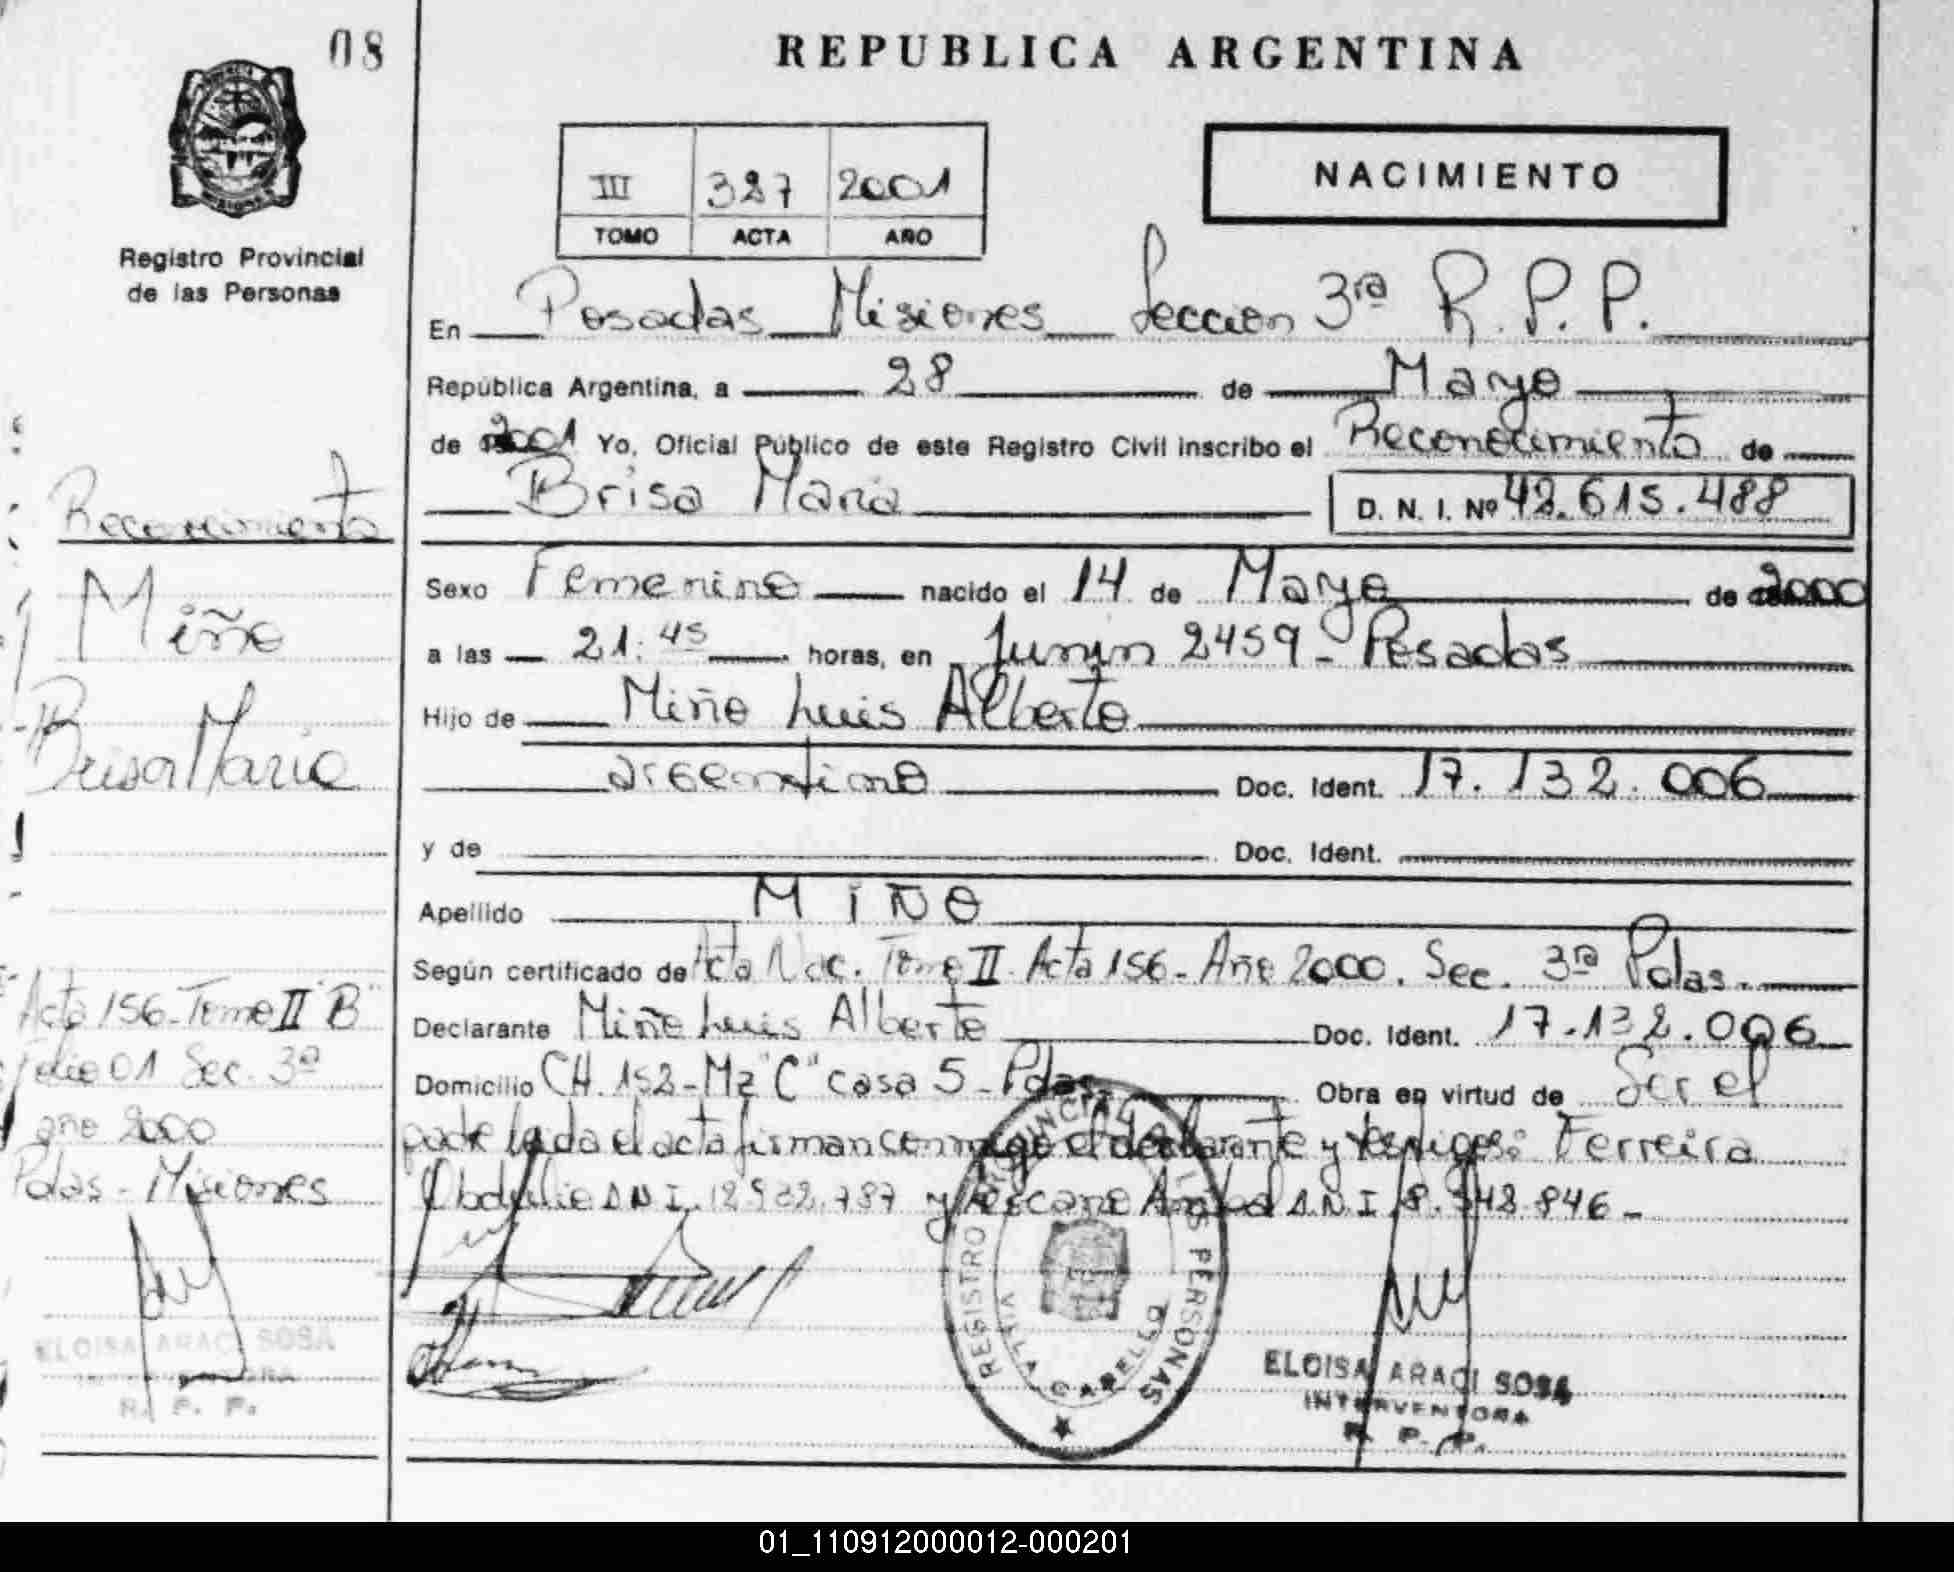 08
REPUBLICA ARGENTINA
Registro Provincial
de las Personas
III 327 2001
TOMO ACTA AÑO
NACIMIENTO
En Posadas Misiones Seccion 3ra R.P.P.
República Argentina, a 28 de Mayo
de 2001 Yo, Oficial Público de este Registro Civil inscribo el Reconocimiento de
Brisa Maria D. N. I. Nº 42.615.488
Sexo Femenino nacido el 14 de Mayo de 2000
a las 21:45 horas, en Junin 2459 - Posadas
Hijo de Miño Luis Alberto
argentino Doc. Ident. 17.132.006
y de Doc. Ident.
Apellido MIÑO
Según certificado de Acta Nac. Tomo II Acta 156 - Año 2000. Sec. 3ra Pdas.
Declarante Miño Luis Alberto Doc. Ident. 17.132.006
Domicilio CH. 152 - Mz "C" casa 5 - Pdas. Obra en virtud de Ser el
padre leida el acta firman conmigo el declarante y testigos: Ferreira
Obdulio D.N.I. 12.932.787 y Anibal D.N.I. 8.542.846 -
Reconocimiento
Miño
Brisa Maria
Acta 156 - Tomo II "B"
Folio 01 Sec. 3a
año 2000
Pdas - Misiones
ELOISA ARACI SOSA
INTERVENTORA
R. P. P.
REGISTRO PROVINCIAL DE LAS PERSONAS
VILLA CABELLO
ELOISA ARACI SOSA
INTERVENTORA
R. P. P.
01_110912000012-000201